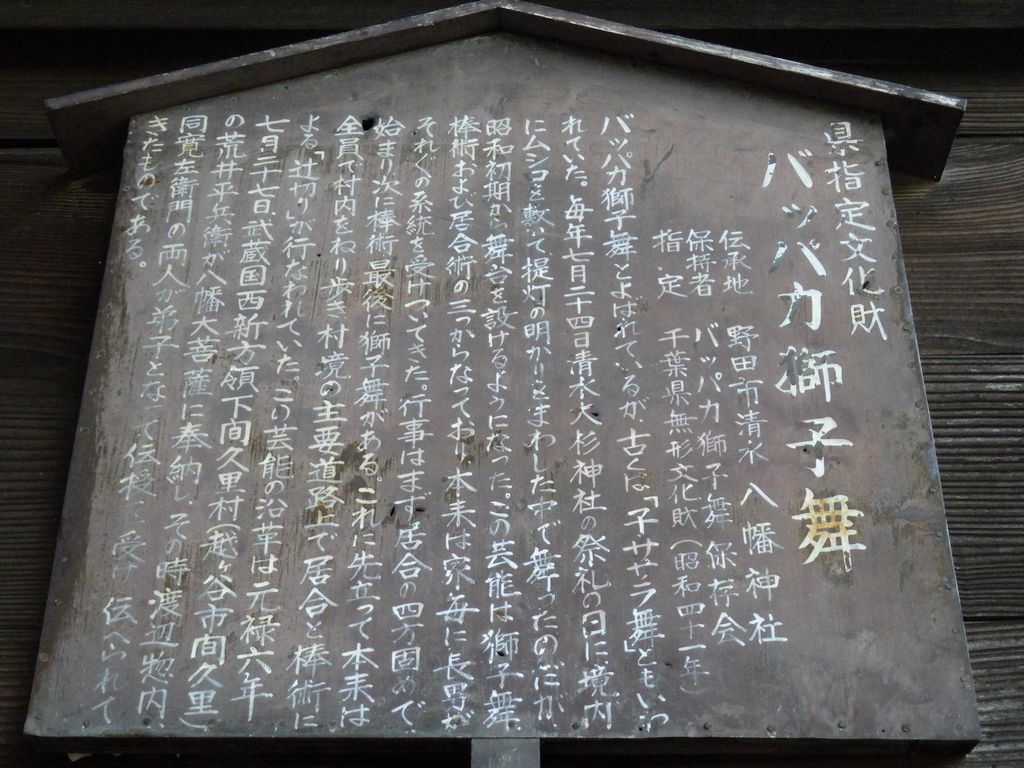 県指定文化財
バッパカ獅子舞
伝承地 野田市清水 八幡神社
保持者 バッパカ獅子舞保存会
指定 千葉県無形文化財（昭和四十一年）
バッパカ獅子舞とよばれているが古くは「子ササラ舞」ともいわ
れていた。毎年七月二十四日清水大杉神社の祭礼の日に境内
にムシロを敷いて提灯の明かりをまわした中で舞ったのだが
昭和初期から舞台を設けるようになった。この芸能は獅子舞、
棒術および居合術の三つからなっており本来は家毎に長男が
それぞれの系統を受けついできた。行事はまず居合の四方固めで
始まり次に棒術、最後に獅子舞がある。これに先立って本来は
全員で村内をねり歩き村境の主要道路上で居合と棒術に
よる「辻切り」が行なわれていた。この芸能の沿革は元禄六年
七月二十七日、武蔵国西新方領下間久里村（越ヶ谷市間久里）
の荒井平兵衛が八幡大菩薩に奉納し、その時渡辺惣内
同寛左衛門の両人が弟子となって伝授を受け 伝へられて
きたものである。